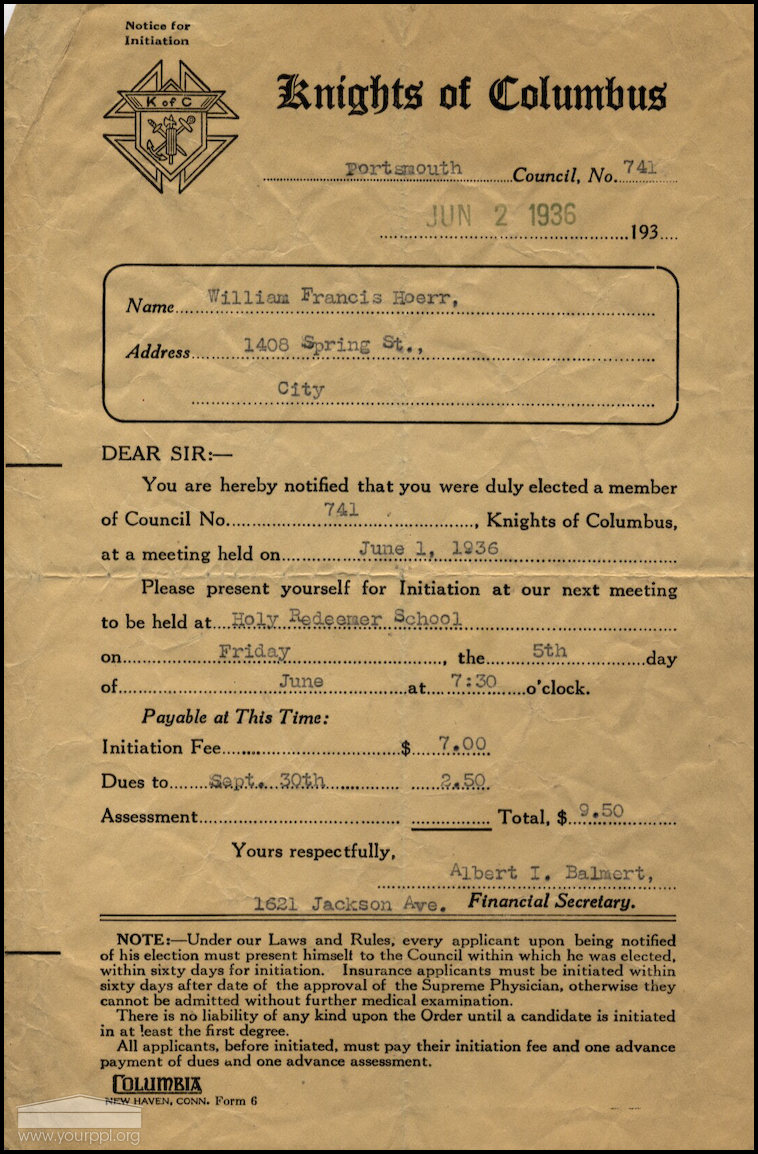 Notice for
Initiation
K of C
Knights of Columbus
Portsmouth Council, No. 741
JUN 2 1936
193
Name William Francis Hoerr,
Address 1408 Spring St.,
City
DEAR SIR:—
You are hereby notified that you were duly elected a member
of Council No. 741, Knights of Columbus,
at a meeting held on June 1, 1936
Please present yourself for Initiation at our next meeting
to be held at Holy Redeemer School
on Friday, the 5th day
of June at 7:30 o'clock.
Payable at This Time:
Initiation Fee $ 7.00
Dues to Sept. 30th 2.50
Assessment Total, $ 9.50
Yours respectfully,
Albert I. Balmert,
1621 Jackson Ave. Financial Secretary.
NOTE:—Under our Laws and Rules, every applicant upon being notified
of his election must present himself to the Council within which he was elected,
within sixty days for initiation. Insurance applicants must be initiated within
sixty days after date of the approval of the Supreme Physician, otherwise they
cannot be admitted without further medical examination.
There is no liability of any kind upon the Order until a candidate is initiated
in at least the first degree.
All applicants, before initiated, must pay their initiation fee and one advance
payment of dues and one advance assessment.
COLUMBIA
NEW HAVEN, CONN. Form 6
www.yourppl.org